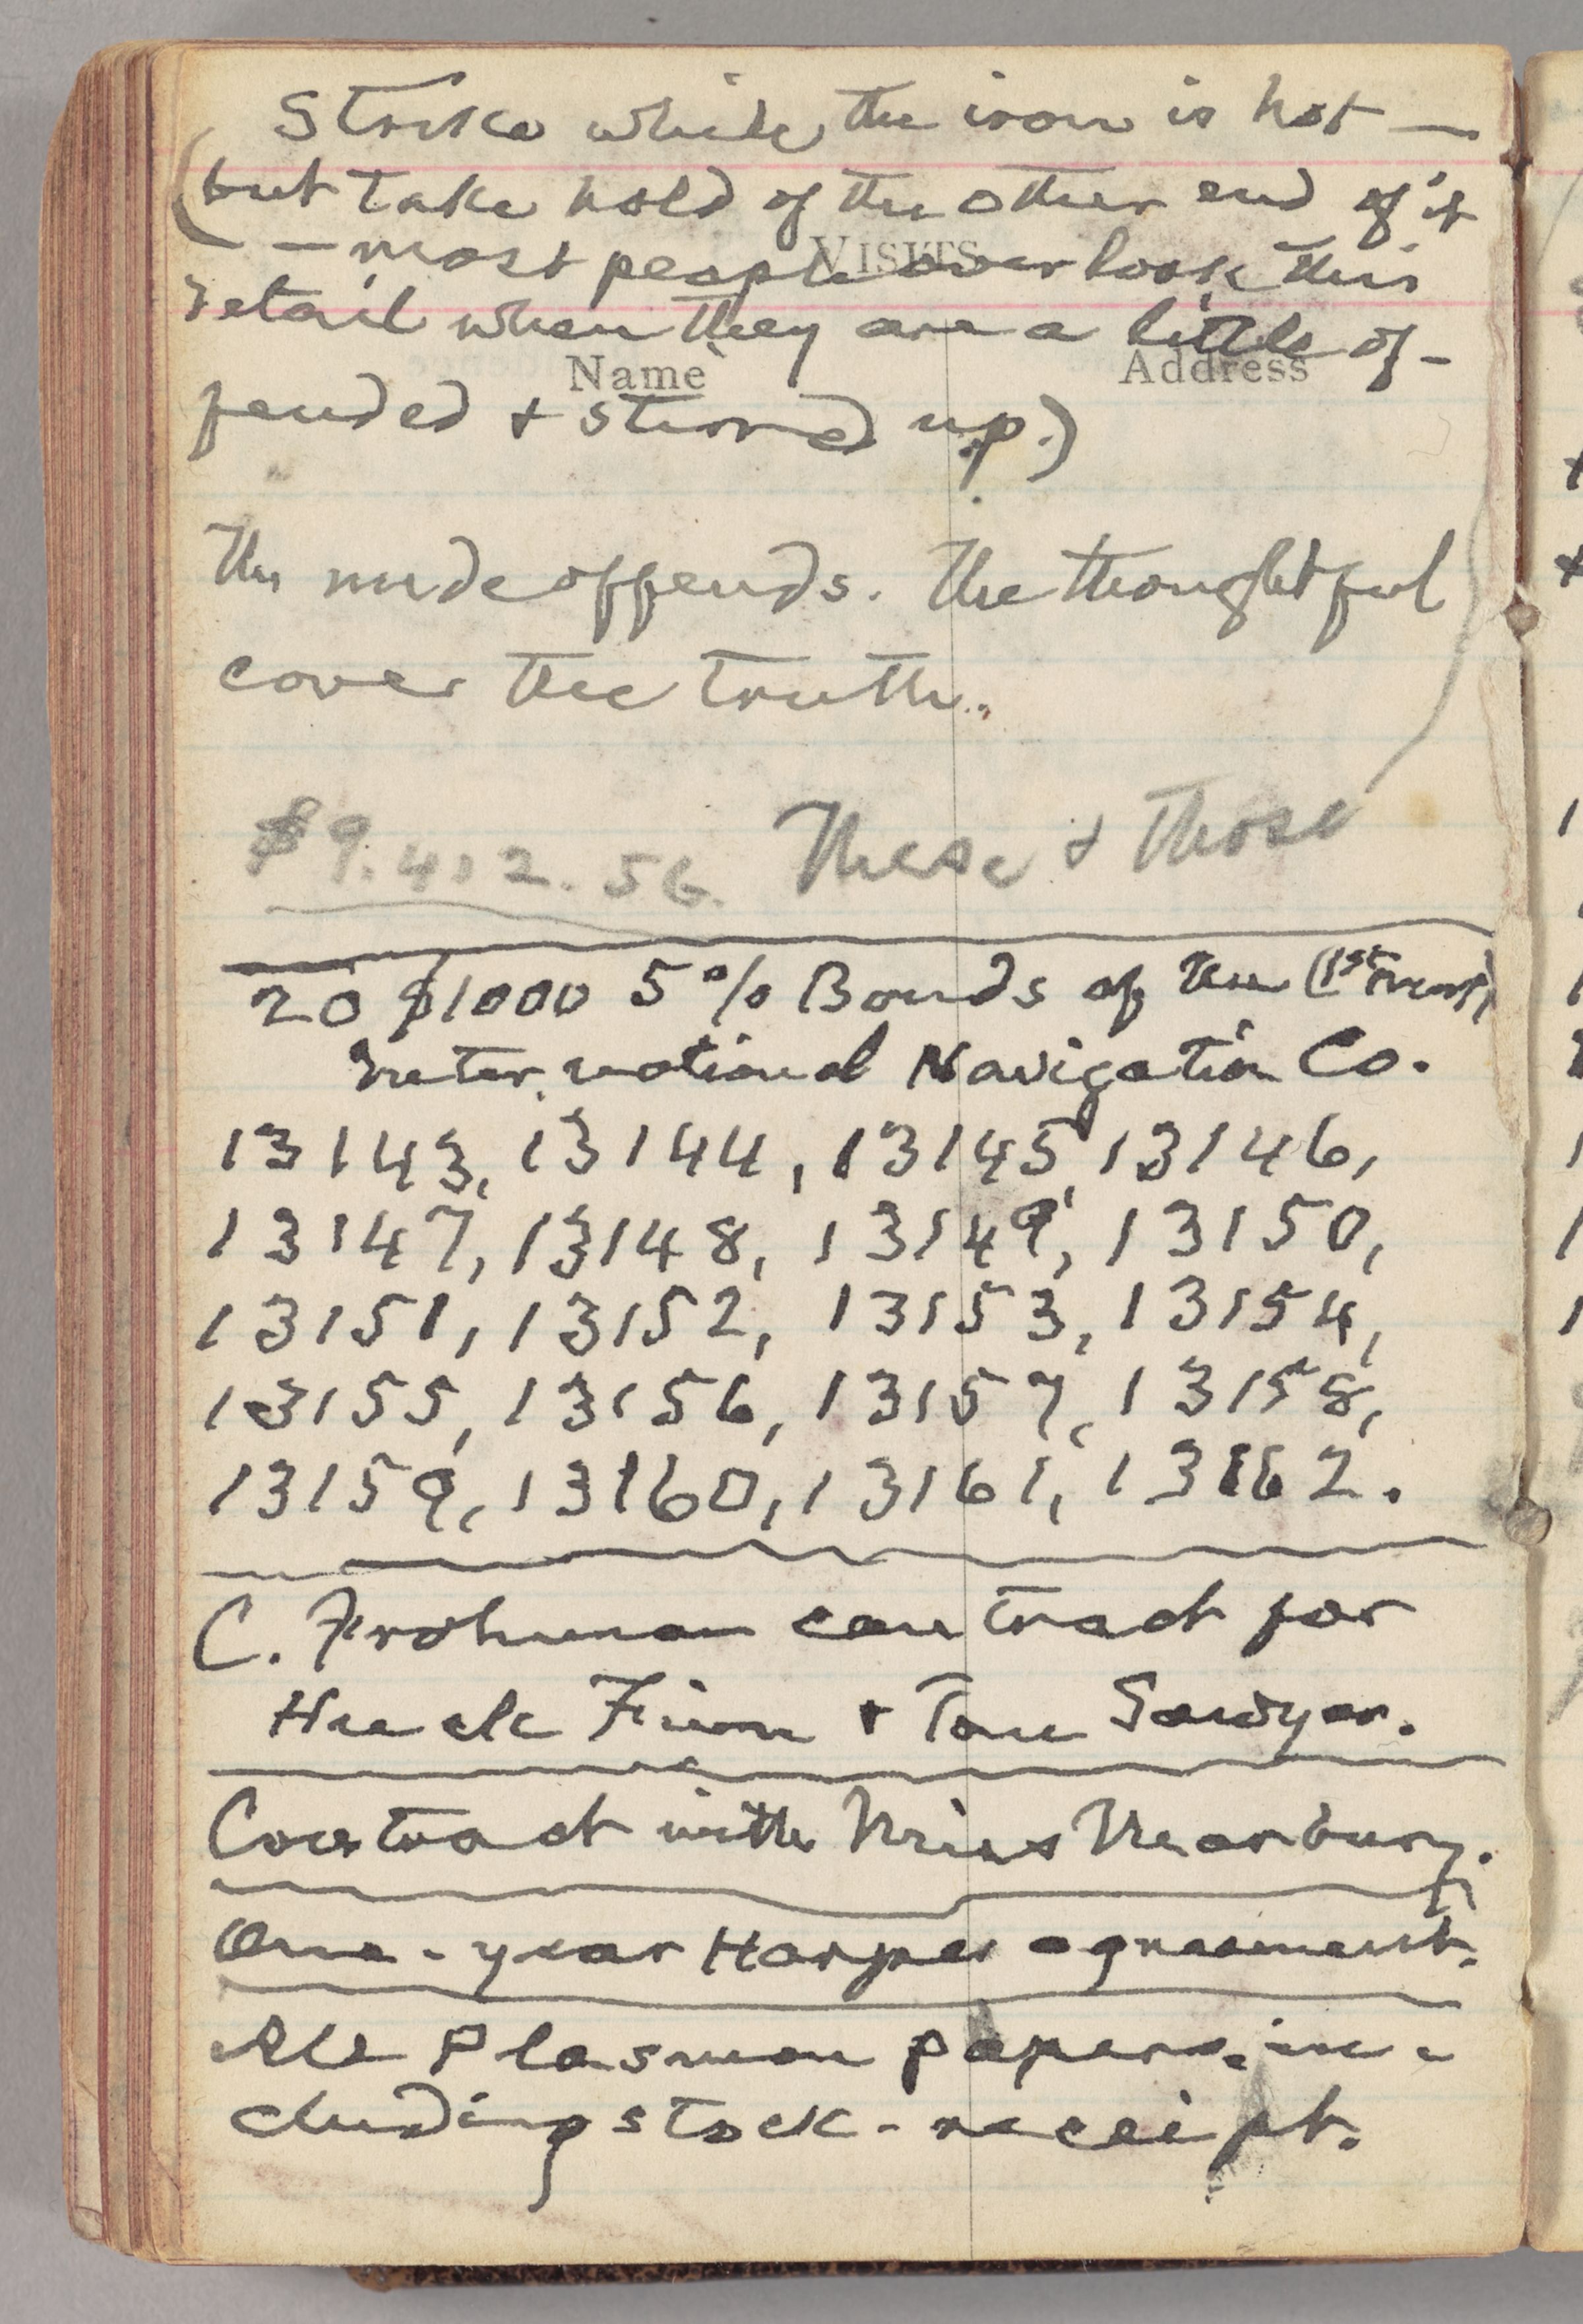 Strike while the iron is hot —
(but take hold of the other end of it
VISITS
— most people overlook this
detail when they are a little of-
Name Address
fended & stirred up.)
The nude offends. The thoughtful
cover the truth.
$9.412.56. These & Those
20 $1000 5% Bonds of the (1st mort)
International Navigation Co.
13143, 13144, 13145, 13146,
13147, 13148, 13149, 13150,
13151, 13152, 13153, 13154,
13155, 13156, 13157, 13158,
13159, 13160, 13161, 13162.
C. Frohman contract for
Huck Finn & Tom Sawyer.
Contract with Miss Marbury.
One-year Harper agreement.
All Plasmon papers, in-
cluding stock-receipt.